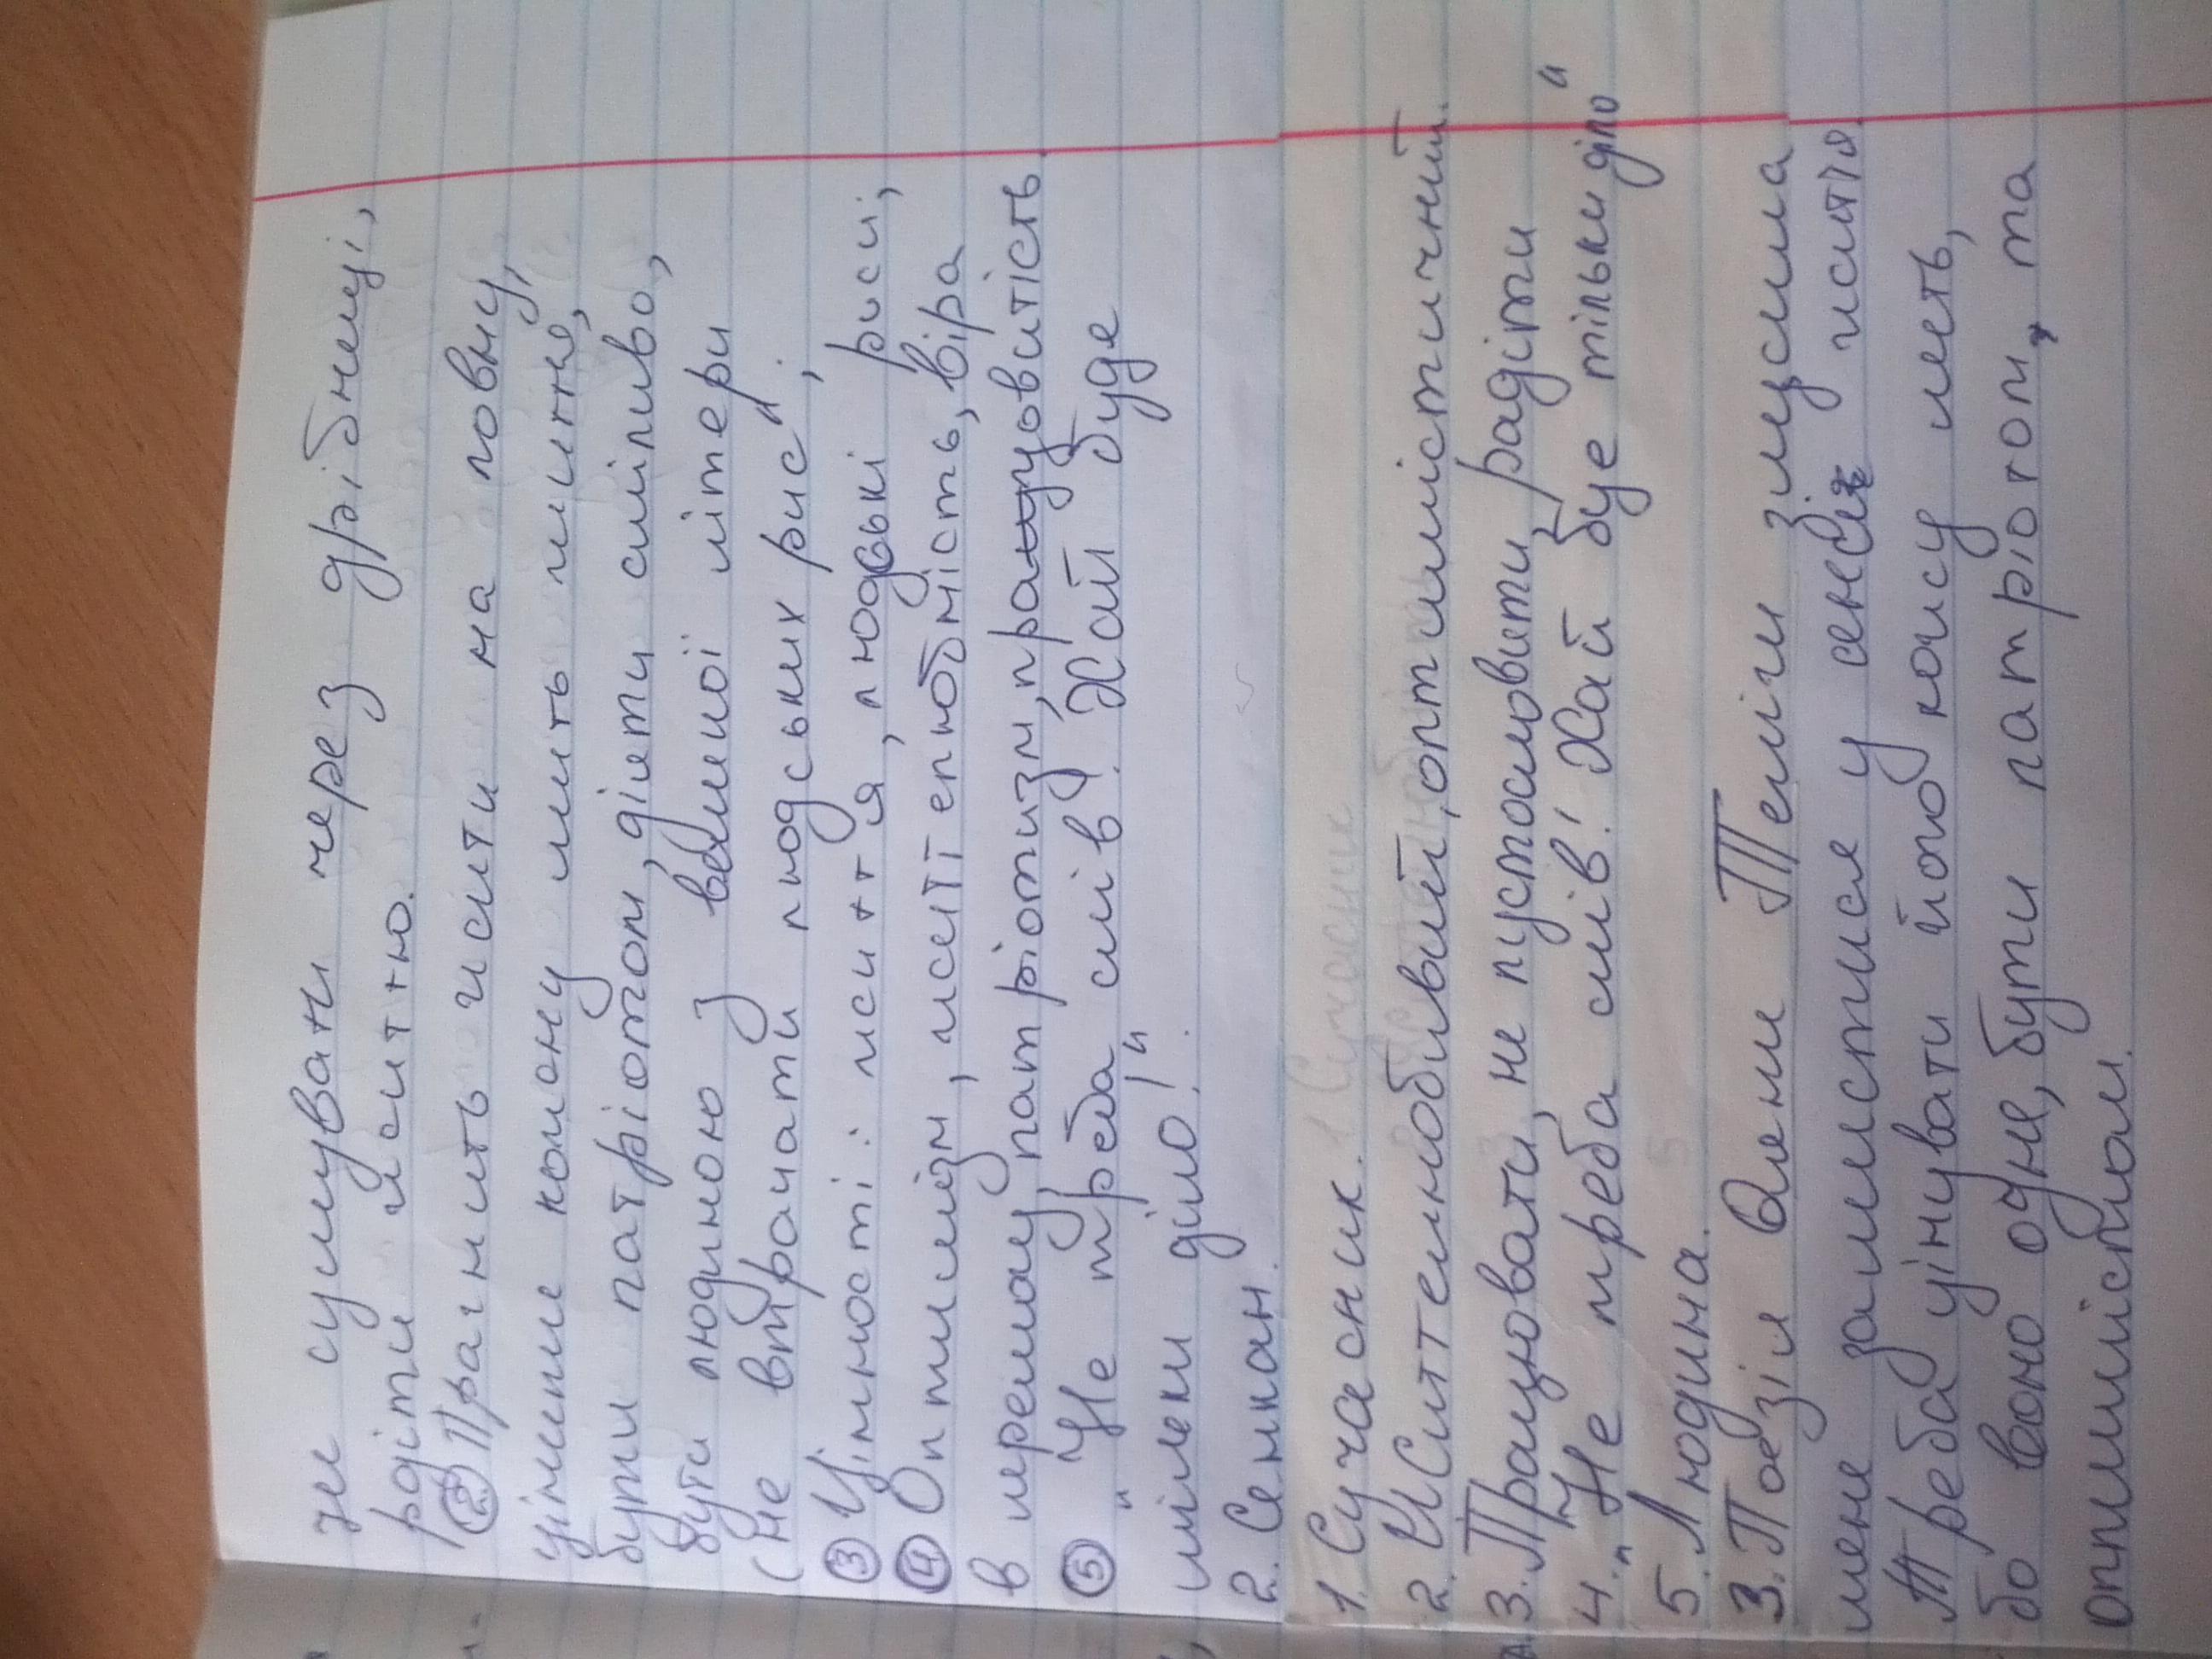 не сумувати через дрібниці,
радіти життю.
② Прагнить жити на повну,
цінним кожну мить життя,
бути патріотом, діяти сміливо,
бути людиною з великої літери
(не втрачати людських рис".
③ Цінності: життя, людські риси,
④ Оптимізм, життєлюбність, віра
в перемогу, патріотизм, працьовитість.
⑤ "Не треба слів! Хай буде
тільки діло!"
2. Сенкан.
1. Сучасник.
2. Життєлюбивий, оптимістичний.
3. Працювати, не пустословити, радіти
4. "Не треба слів! Хай буе тільки діло"
5. Людина.
3. Поезія Олени Теліги змусила
мене замислитися у сенсі життя.
Треба цінувати йото кожну меть,
бо воно одне, бути патріотом, та
оптимістом.